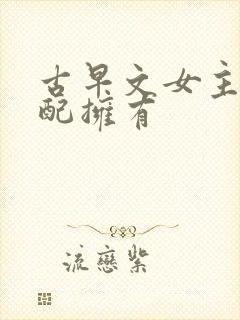 古早文女主
配擁有
流戀紫